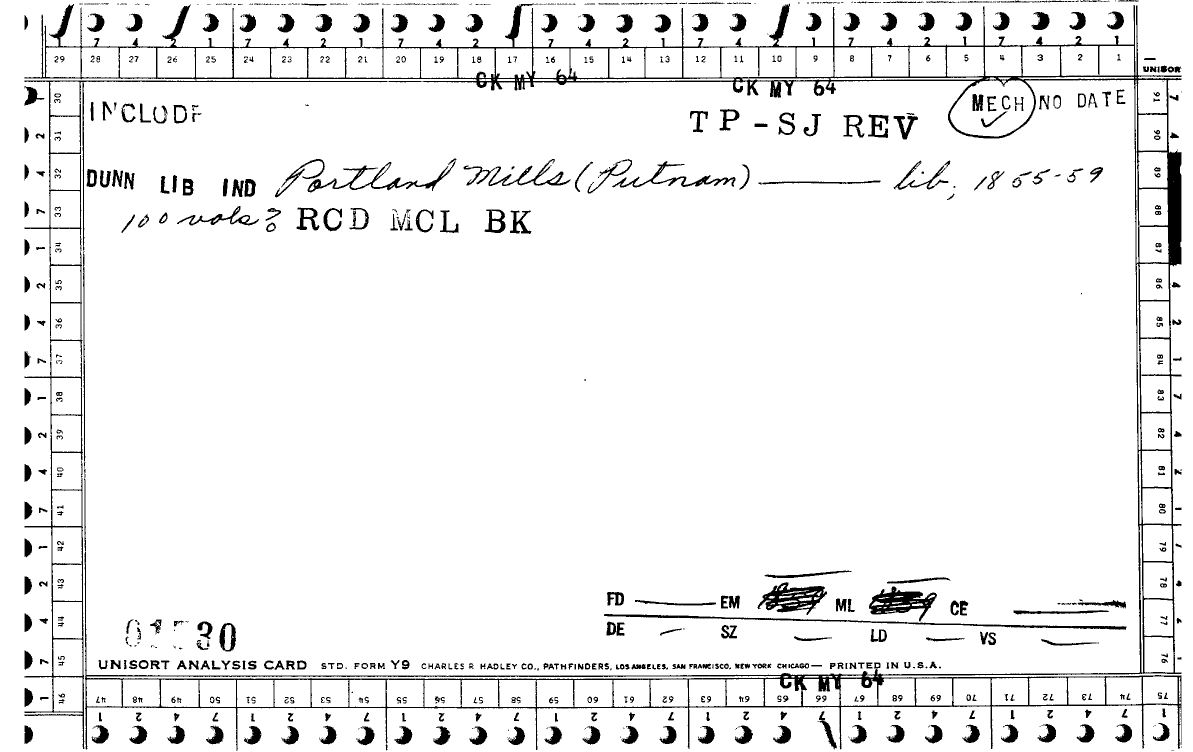 7 4 2 1 7 4 2 1 7 4 2 1 7 4 2 1 7 4 2 1 7 4 2 1 7 4 2 1
29 28 27 26 25 24 23 22 21 20 19 18 17 16 15 14 13 12 11 10 9 8 7 6 5 4 3 2 1
UNISOR
CK MY 64 CK MY 64
INCLUDE MECH NO DATE
TP-SJ REV
DUNN LIB IND Portland Mills (Putnam) — lib, 1855-59
100 vols? RCD MCL BK
1 30
2 31
4 32
7 33
1 34
2 35
4 36
7 37
1 38
2 39
4 40
7 41
1 42
2 43
4 44
7 45
1 46
91
90
89
88
87
86
85
84
83
82
81
80
79
78
77
76
FD EM ML CE
DE SZ LD VS
UNISORT ANALYSIS CARD STD. FORM Y9 CHARLES R HADLEY CO., PATHFINDERS, LOS ANGELES, SAN FRANCISCO, NEW YORK CHICAGO — PRINTED IN U.S.A.
CK MY 64
47 48 49 50 51 52 53 54 55 56 57 58 59 60 61 62 63 64 65 66 67 68 69 70 71 72 73 74 75
1 2 4 7 1 2 4 7 1 2 4 7 1 2 4 7 1 2 4 7 1 2 4 7 1 2 4 7 1